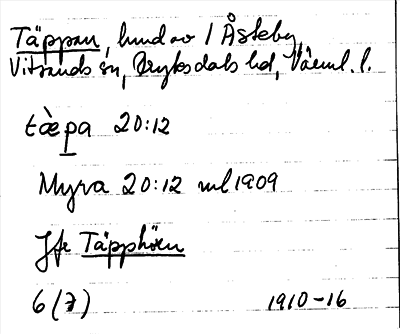 Täppan, hmd av 1 Åsteby,
Vitsands sn, Fryksdals hd, Värml. l.
tæ̀pa 20:12
Myra 20:12 ml 1909
Jfr Täpphöjen
6 (7) 1910-16